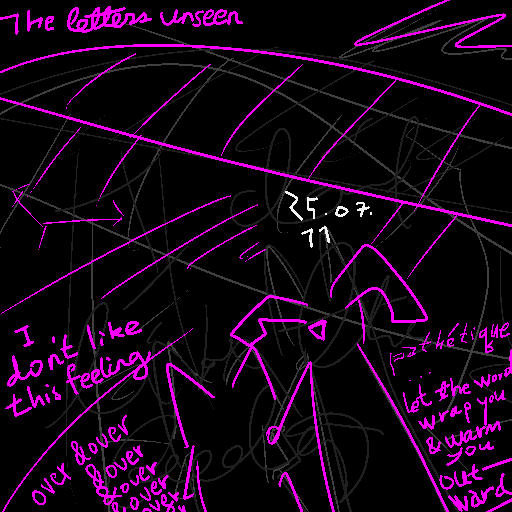 The letters unseen
25.07.
11
I
don't like
this feeling,
over & over
& over
& over
& over
over
Pathétique
...
Let the word
wrap you
& warm
you
out
ward